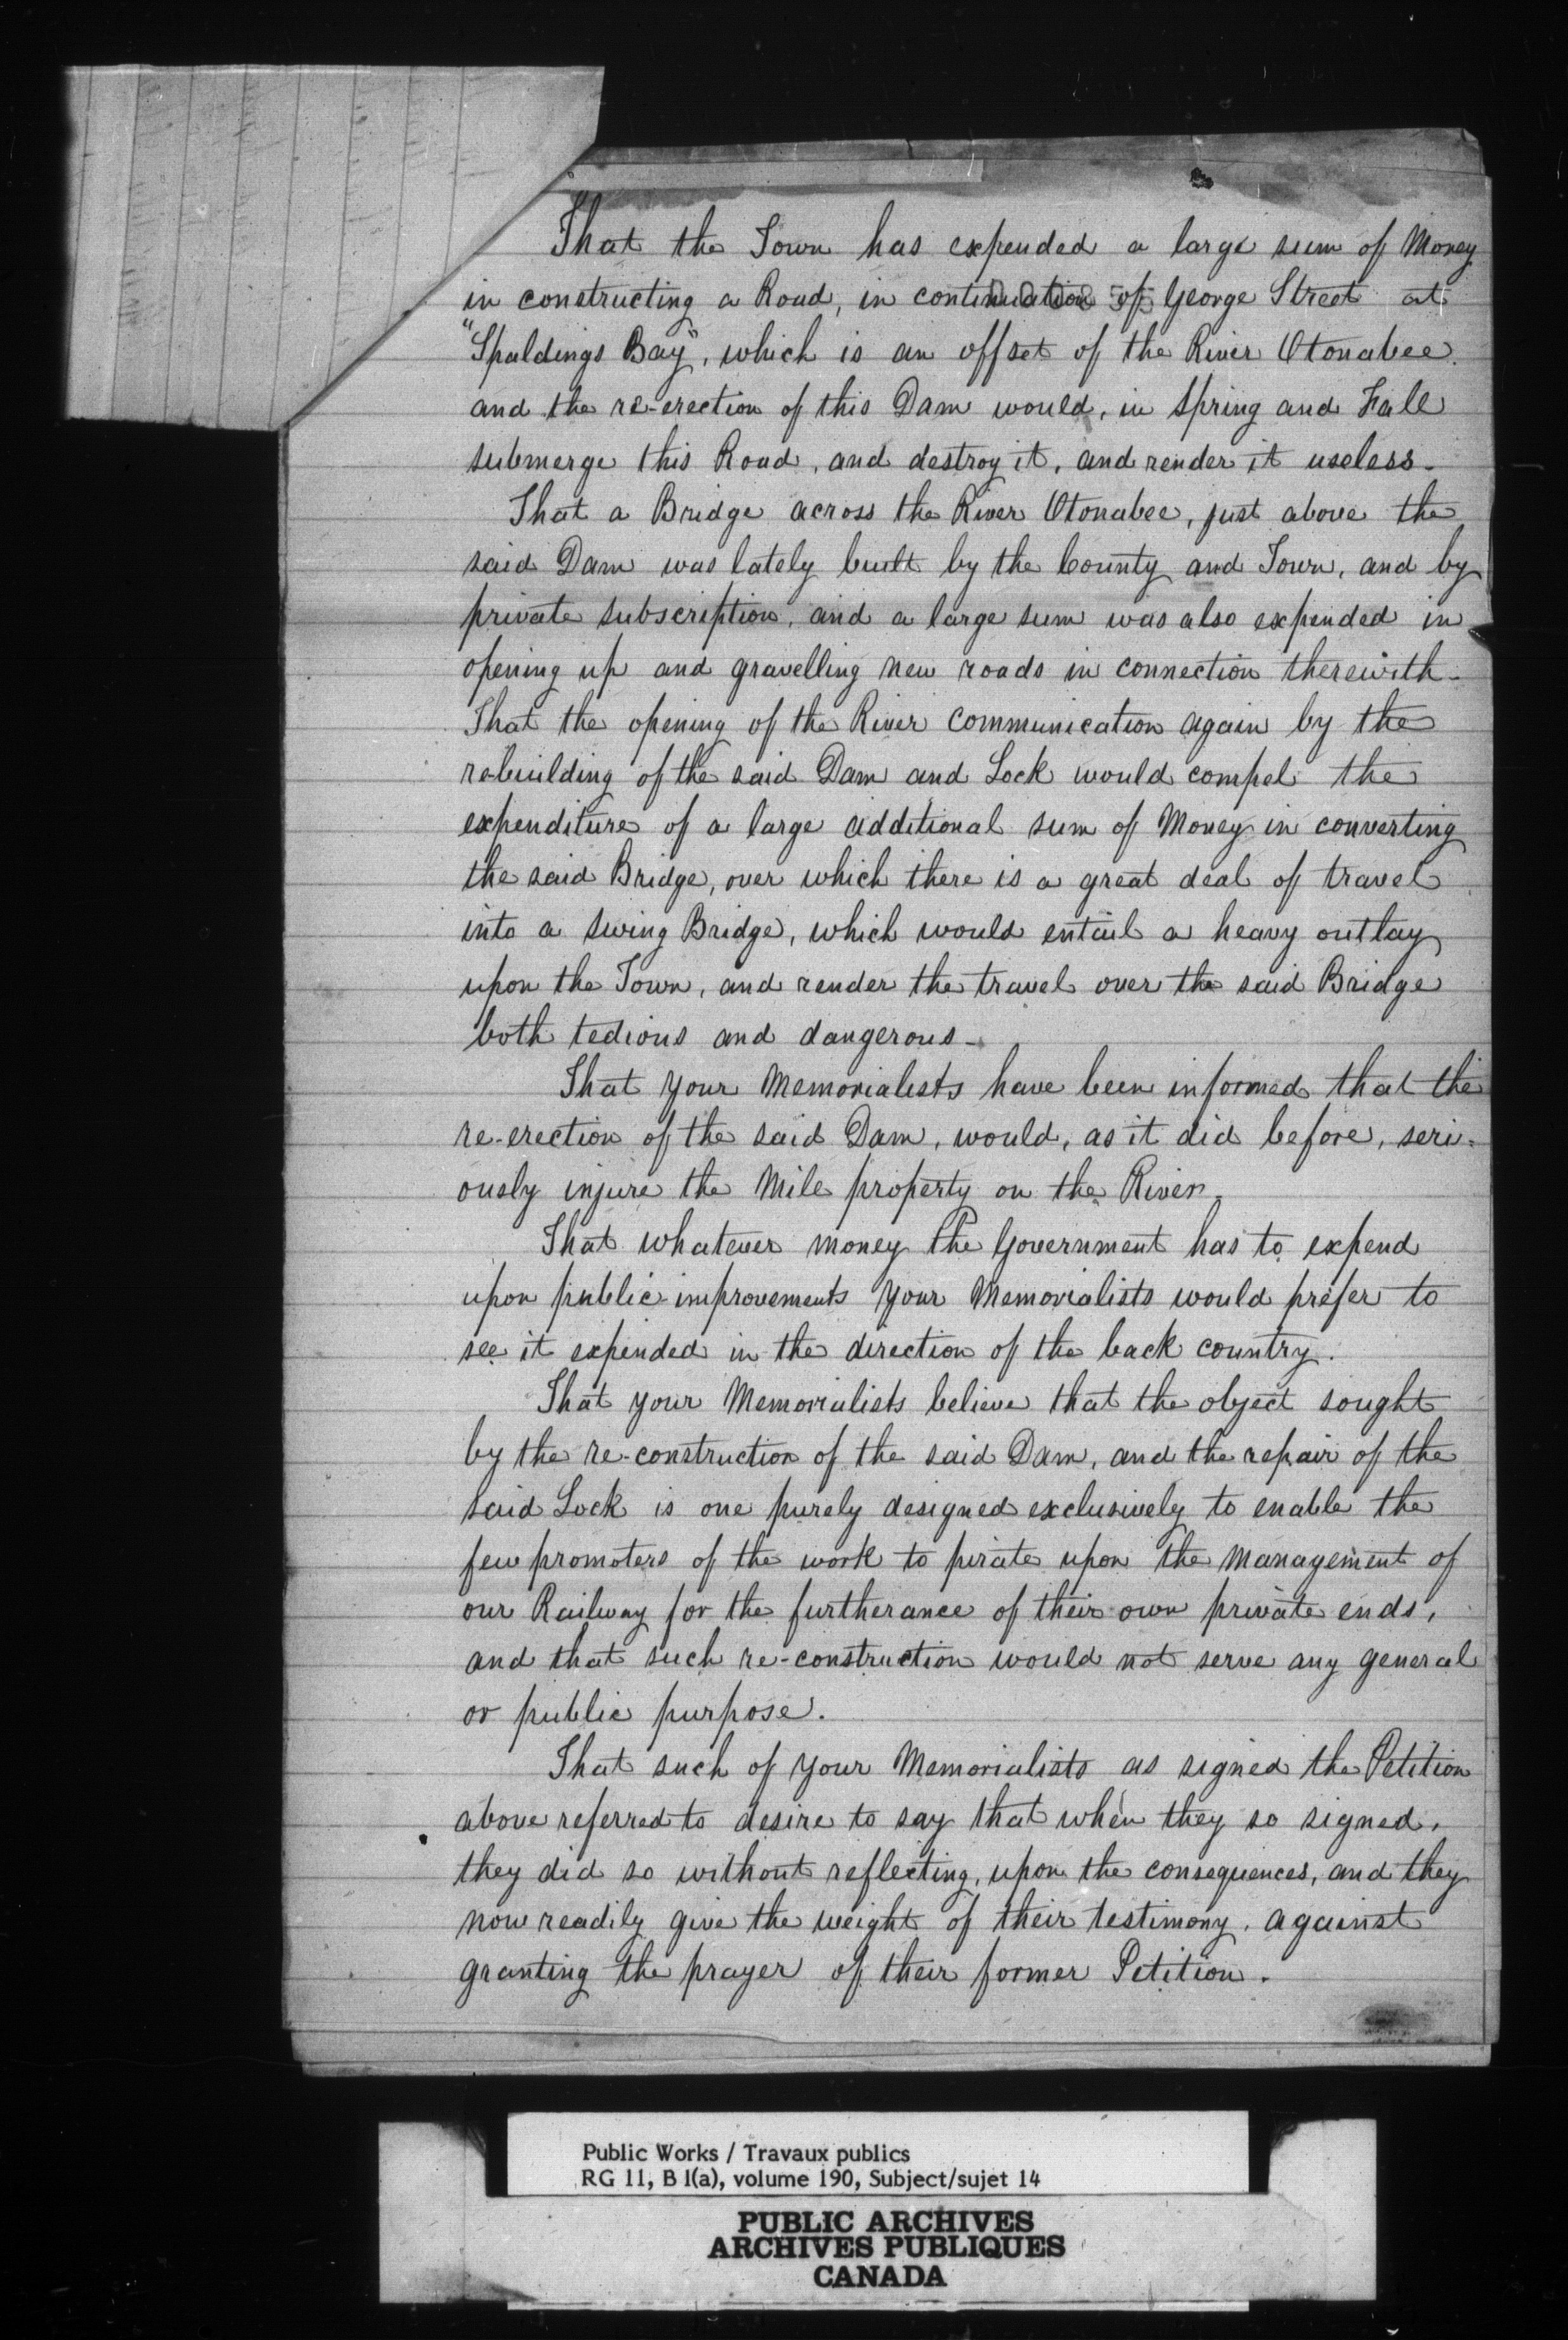 That the Town has expended a large sum of Money
in constructing a Road, in continuation of George Street at
"Spaldings Bay", which is an offset of the River Otonabee.
and the re-erection of this Dam would, in Spring and Fall
submerge this Road, and destroy it, and render it useless.
That a Bridge across the River Otonabee, just above the
said Dam was lately built by the County and Town, and by
private subscription, and a large sum was also expended in
opening up and gravelling new roads in connection therewith.
That the opening of the River communication again by the
rebuilding of the said Dam and Lock would compel the
expenditure of a large additional sum of Money in converting
the said Bridge, over which there is a great deal of travel
into a swing Bridge, which would entail a heavy outlay
upon the Town, and render the travel over the said Bridge
both tedious and dangerous.
That your Memorialists have been informed that the
re-erection of the said Dam, would, as it did before, seri-
ously injure the Mill property on the River.
That whatever money the Government has to expend
upon public improvements your Memorialists would prefer to
see it expended in the direction of the back country.
That your Memorialists believe that the object sought
by the re-construction of the said Dam, and the repair of the
said Lock is one purely designed exclusively to enable the
few promoters of the work to pirate upon the management of
our Railway for the furtherance of their own private ends,
and that such re-construction would not serve any general
or public purpose.
That such of your Memorialists as signed the Petition
above referred to desire to say that when they so signed,
they did so without reflecting, upon the consequences, and they
now readily give the weight of their testimony, against
granting the prayer of their former Petition.
Public Works / Travaux publics
RG 11, B 1(a), volume 190, Subject/sujet 14
PUBLIC ARCHIVES
ARCHIVES PUBLIQUES
CANADA